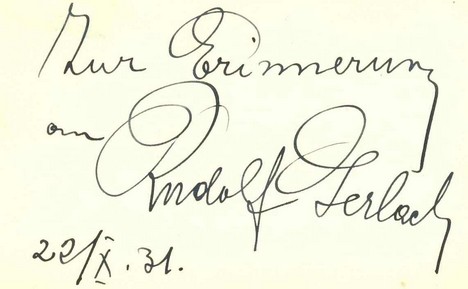 Zur Erinnerung
an
Rudolf Gerlach
22/X. 31.